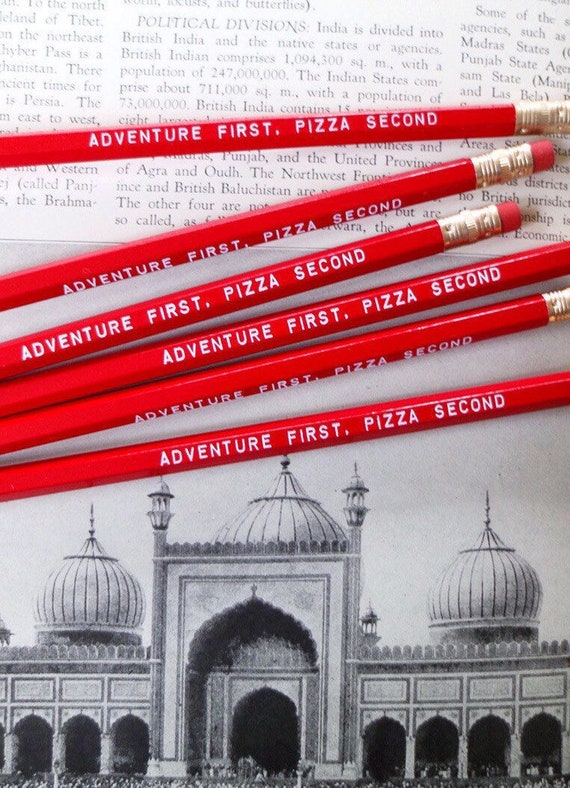 To the north
land of Tibet.
on the northeast
hyber Pass is a
ghanistan. There
cient times for
is Persia. The
m east to west,
Western
(called Panj-
s, the Brahma-
locusts, and butterflies).
POLITICAL DIVISIONS: India is divided into
British India and the native states or agencies.
British Indian comprises 1,094,300 sq. m., with a
population of 247,000,000. The Indian States com-
prise about 711,000 sq. m., with a population of
73,000,000. British India contains 15
Provinces and
Madras, Punjab, and the United Provinces
of Agra and Oudh. The Northwest
ince and British Baluchistan are
The other four are not but are
so called, as the
Some of the s
agencies, such as
Madras States (
Punjab State Agen
sam State (Manip
and Las Bela)
Areas,
districts
jurisdict
is
Economic
ADVENTURE FIRST, PIZZA SECOND
ADVENTURE FIRST, PIZZA SECOND
ADVENTURE FIRST, PIZZA SECOND
ADVENTURE FIRST, PIZZA SECOND
ADVENTURE FIRST, PIZZA SECOND
ADVENTURE FIRST, PIZZA SECOND